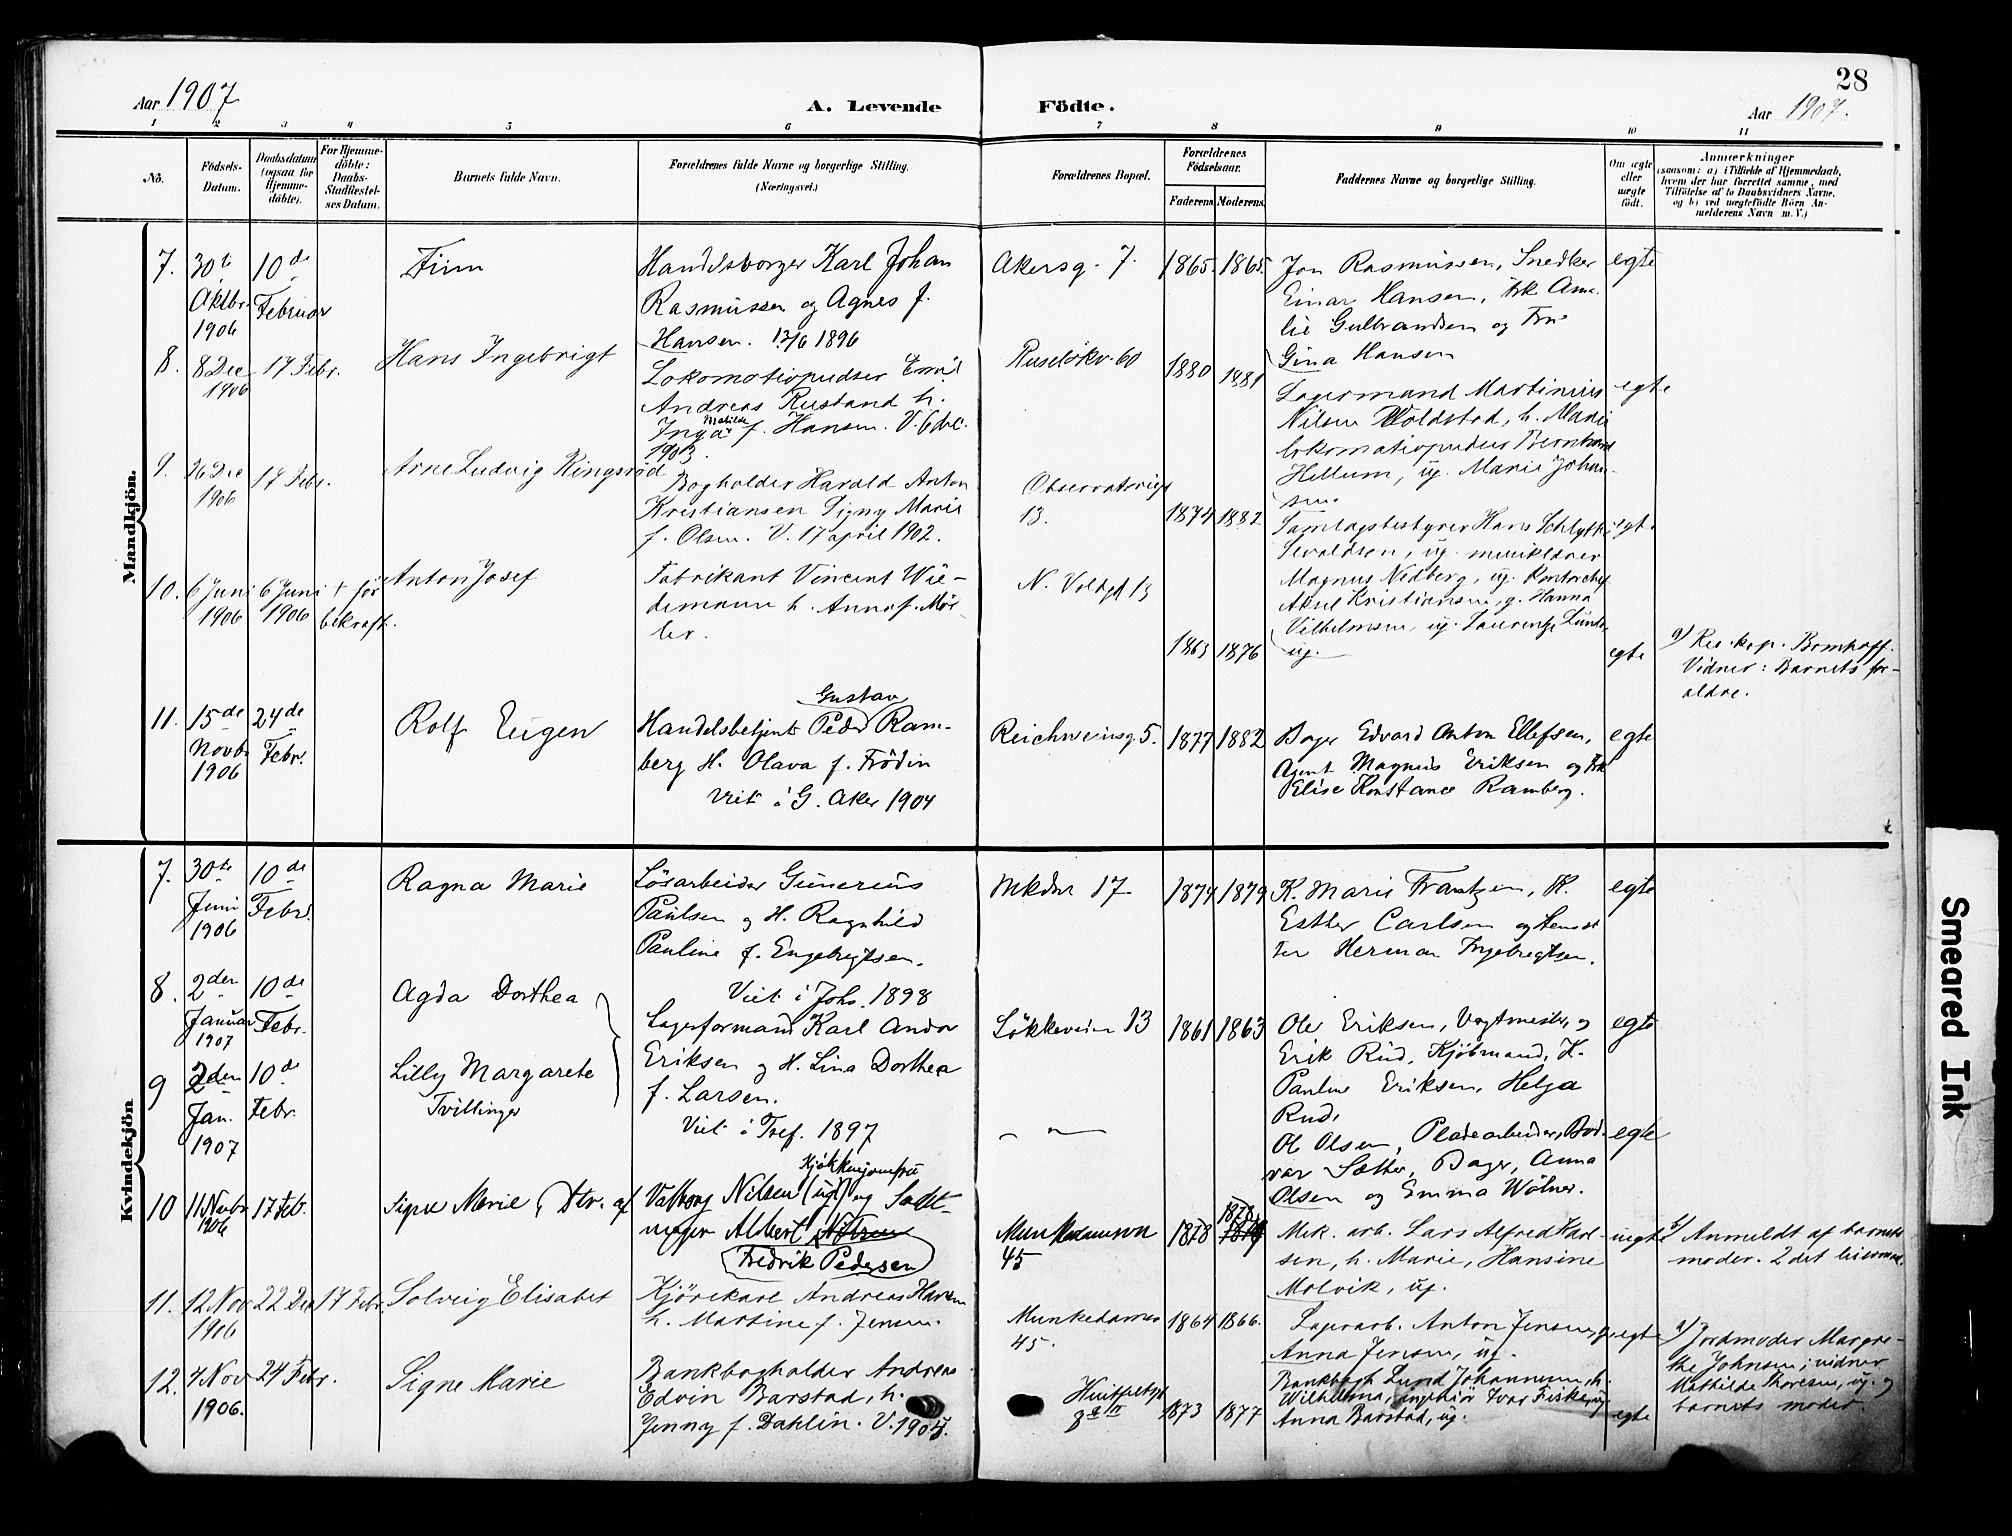 28
Aar 1907
A. Levende
Födte.
Aar 1907.
1 2 3 4 5 6 7 8 9 10 11
No.
Födsels-
Datum.
Daabsdatum
(ogsaa for
Hjemme-
döbte).
For Hjemme-
döbte:
Daabs-
Stadfæstel-
ses Datum.
Barnets fulde Navn.
Forældrenes fulde Navne og borgerlige Stilling.
(Næringsvei.)
Forældrenes Bopæl.
Forældrenes
Födselsaar.
Faderens
Moderens
Faddernes Navne og borgerlige Stilling.
Om ægte
eller
uægte
födt.
Anmærkninger
(saasom: a) i Tilfælde af Hjemmedaab,
hvem der har forrettet samme, med
Tilföielse af to Daabsvidners Navne,
og b) ved uægtefödte Börn An-
melderens Navn m. V.)
Mandkjön.
7.
30te
Oktbr.
1906
10de
Februar
Finn
Handelsborger Karl Johan
Rasmussen og Agnes f.
Hansen. 13/6 1896
Akersg. 7.
1865.
1865.
Jon Rasmussen, Snedker
Einar Hansen, frk Ama-
lie Gulbrandsen og Fru
Gina Hansen
egte
8.
8 Dec
1906
17 Febr.
Hans Ingebrigt
Lokomotivpudser Emil
Andreas Rustand h.
Matilde
Inga f. Hansen. V. 6 dec.
1903.
Ruselökv. 60
1880
1881
Lagermand Martinius
Nilsen Woldstad, h. Marie
lokomotivpudser Bernhard
Hellum, ug. Marie Johan-
sen.
egte
9.
26 Dec
1906
17 Febr.
Arne Ludvig Ringsröd
Bogholder Harald Anton
Kristiansen Signy Marie
f. Olsen. V. 17 april 1902.
Observatoriegt
13.
1874
1882.
Samlagsbestyrer Hans Schlytter
Sevaldsen, ug. musiklærer
Magnus Nedberg, ug. Kontorchef
Aksel Kristiansen, g. Hanna
Vilhelmsen, ug. Laurentze Lund,
ug.
egt.
10.
6 Juni
1906
6 Juni
1906
+ för
bekræft.
Anton Josef
Fabrikant Vincent Wie-
demann h. Anna f. Mör-
ler.
N. Voldgt 13
1863
1876
egte
a) Res. kap. Bomhoff.
Vidner: Barnets for-
ældre.
11.
15de
Novb.
1906
24de
Febr.
Rolf Eugen
Gustav
Handelsbetjent Peder Ram-
berg H. Olava f. Frödin
Viet i G. Aker 1904
Reichweinsg 5.
1877
1882
Bager Edvard Anton Ellefsen,
Agent Magnus Eriksen og Frk
Elise Konstance Ramberg.
egte
Kvindekjön
7.
30te
Juni
1906
10de
Febr.
Ragna Marie
Lösarbeider Gunerius
Paulsen og H. Ragnhild
Pauline f. Engebrigtsen.
Viet i Joh. 1898
Mkdv 17.
1874
1879
K. Marie Frantzen, K.
Esther Carlsen og
Herman Ingebregtsen.
egte
8.
2den
Januar
1907
10de
Febr.
Agda Dorthea
Lagerformand Karl Andor
Eriksen og H. Lina Dorthea
f. Larsen.
Viet i Tref. 1897
Lökkeveien 13
1861
1863
Ole Eriksen, Vagtmester, og
Erik Rud, Kjöbmand, K.
Pauline Eriksen, Helga
Rud.
egte
9
2den
Jan.
1907
10de
Febr.
Lilly Margarete
Tvillinger
— " —
Ol Olsen, Pladearbeider, Bod-
var Sæther, Bager, Anna
Olsen og Emma Wölner.
egte
10
11 Novbr
1906
17 Feb.
Signe Marie, Dtr. af
Kjökkenjomfru
Valborg Nilsen (ugt) og Sadel-
mager Albert Nilsen
Fredrik Pedersen
Munkedamsv
45
1878
1878
1879
Mek. arb. Lars Alfred Karl-
sen, h. Marie, Hansine
Molvik, ug.
uegte
b) Anmeldt af barnets
moder. 2 det leiermaal.
11.
12 Nov
1906
22 Dec
17 Febr.
Solveig Elisabet
Kjörekarl Andreas Hansen
h. Martine f. Jensen.
Munkedamsv
45.
1864
1866.
Lagerarb. Anton Jensen, g.
Anna Jensen, ug.
egte
a) Jordmoder Margre-
the Johnsen; vidner
Mathilde Thoresen, ug. og
barnets moder.
12.
4 Nov
1906.
24 Febr.
Signe Marie
Bankbogholder Andreas
Edvin Barstad, h.
Jenny f. Dahlin. V. 1905.
Huitfeldtgt
1873
1877
Bankbogh Lund Johannesen, h.
Wilhelmina, ingeniör Ivar Fiske, ug
Anna Barstad, ug.
egte
Smeared Ink